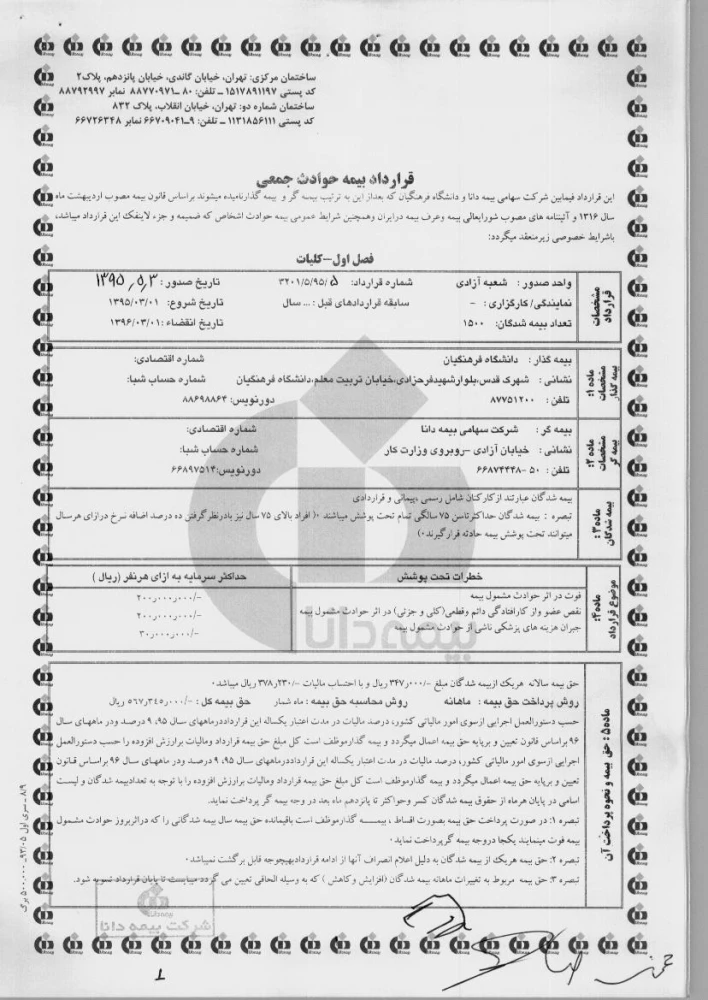 ساختمان مرکزی: تهران، خیابان گاندی، خیابان پانزدهم، پلاک ۲
کد پستی ۱۵۱۷۸۹۱۱۹۷ ــ تلفن: ۸۰ ــ۸۸۷۷۰۹۷۱ نمابر ۸۸۷۹۲۹۹۷
ساختمان شماره دو: تهران، خیابان انقلاب، پلاک ۸۳۲
کد پستی ۱۱۳۱۸۵۶۱۱۱ ــ تلفن: ۹ــ۶۶۷۰۹۰۴۱ نمابر ۶۶۷۲۶۳۴۸
قرارداد بیمه حوادث جمعی
این قرارداد فیمابین شرکت سهامی بیمه دانا و دانشگاه فرهنگیان که بعداز این به ترتیب بیمه گر و بیمه گذارنامیده میشوند براساس قانون بیمه مصوب اردیبهشت ماه
سال ۱۳۱۶ و آئیننامه های مصوب شورایعالی بیمه وعرف بیمه درایران وهمچنین شرایط عمومی بیمه حوادث اشخاص که ضمیمه و جزء لاینفک این قرارداد میباشد،
باشرایط خصوصی زیرمنعقد میگردد:
فصل اول–کلیات
مشخصات قرارداد
واحد صدور : شعبه آزادی شماره قرارداد: ۳۲۰۱/۵/۹۵/۵ تاریخ صدور : ۱۳۹۵/۵/۳
نمایندگی/ کارگزاری : - سابقه قراردادهای قبل : ... سال تاریخ شروع: ۱۳۹۵/۰۳/۰۱
تعداد بیمه شدگان: ۱۵۰۰ تاریخ انقضاء : ۱۳۹۶/۰۳/۰۱
ماده ۱: مشخصات بیمه گذار
بیمه گذار : دانشگاه فرهنگیان شماره اقتصادی:
نشانی : شهرک قدس،بلوارشهیدفرحزادی،خیابان تربیت معلم،دانشگاه فرهنگیان شماره حساب شبا:
تلفن : ۸۷۷۵۱۲۰۰ دورنویس: ۸۸۶۹۸۸۶۴
ماده ۲: مشخصات بیمه گر
بیمه گر : شرکت سهامی بیمه دانا شماره اقتصادی:
نشانی : خیابان آزادی –روبروی وزارت کار شماره حساب شبا:
تلفن : ۵۰ –۶۶۸۷۴۴۴۸ دورنویس:۶۶۸۹۷۵۱۴
ماده ۳ : بیمه شدگان
بیمه شدگان عبارتند ازکارکنان شامل رسمی ،پیمانی و قراردادی
تبصره : بیمه شدگان حداکثرتاسن ۷۵ سالگی تمام تحت پوشش میباشند ۰( افراد بالای ۷۵ سال نیز بادرنظرگرفتن ده درصد اضافه نرخ درازای هرسال
میتوانند تحت پوشش بیمه حادثه قرارگیرند۰)
ماده۴: موضوع قرارداد
خطرات تحت پوشش حداکثر سرمایه به ازای هرنفر (ریال )
فوت در اثر حوادث مشمول بیمه ۲۰۰ر۰۰۰ر۰۰۰/-
نقص عضو واز کارافتادگی دائم وقطعی(کلی و جزئی) در اثر حوادث مشمول بیمه ۲۰۰ر۰۰۰ر۰۰۰/-
جبران هزینه های پزشکی ناشی از حوادث مشمول بیمه ۳۰ر۰۰۰ر۰۰۰/-
ماده۵ : حق بیمه و نحوه پرداخت آن
حق بیمه سالانه هریک ازبیمه شدگان مبلغ -/۳۴۷ر۰۰۰ ریال و با احتساب مالیات -/۳۷۸ر۲۳۰ ریال میباشد۰
روش پرداخت حق بیمه : ماهانه روش محاسبه حق بیمه : ماه شمار حق بیمه کل : -/۵٦۷ر۳٤۵ر۰۰۰ ریال
حسب دستورالعمل اجرایی ازسوی امور مالیاتی کشور، درصد مالیات در مدت اعتبار یکساله این قرارداددرماههای سال ۹۵، ۹ درصد ودر ماههای سال
۹۶ براساس قانون تعیین و برپایه حق بیمه اعمال میگردد و بیمه گذارموظف است کل مبلغ حق بیمه قرارداد ومالیات برارزش افزوده را حسب دستورالعمل
اجرایی ازسوی امور مالیاتی کشور، درصد مالیات در مدت اعتبار یکساله این قرارداددرماههای سال ۹۵، ۹ درصد ودر ماههای سال ۹۶ براساس قانون
تعیین و برپایه حق بیمه اعمال میگردد و بیمه گذارموظف است کل مبلغ حق بیمه قرارداد ومالیات برارزش افزوده را با توجه به تعدادبیمه شدگان و لیست
اسامی در پایان هرماه از حقوق بیمه شدگان کسر وحداکثر تا پانزدهم ماه بعد در وجه بیمه گر پرداخت نماید.
تبصره ۱: در صورت پرداخت حق بیمه بصورت اقساط ، بیمه گذارموظف است باقیمانده حق بیمه سال بیمه شدگانی را که دراثربروز حوادث مشمول
بیمه فوت مینمایند یکجا دروجه بیمه گرپرداخت نماید۰
تبصره ۲: حق بیمه هریک از بیمه شدگان به دلیل اعلام انصراف آنها از ادامه قراردادبهیچوجه قابل برگشت نمیباشد۰
تبصره ۳: حق بیمه مربوط به تغییرات ماهانه بیمه شدگان (افزایش وکاهش ) که به وسیله الحاقی تعیین می گردد میبایست تا پایان قرارداد تسویه شود.
بیمه دانا
شرکت بیمه دانا
1